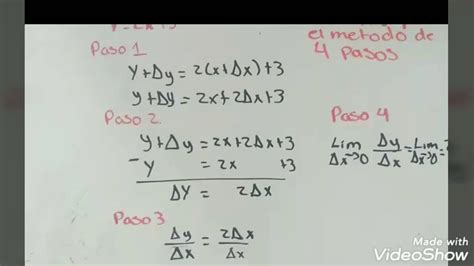 el metodo de
4 pasos
Paso 1
y+Δy = 2(x+Δx)+3
y+Δy = 2x+2Δx+3
Paso 2
y+Δy = 2x+2Δx+3
-y = 2x +3
ΔY = 2Δx
Paso 3
Δy/Δx = 2Δx/Δx
Paso 4
Lim Δx→0 Δy/Δx = Lim Δx→0 =
Made with
VideoShow